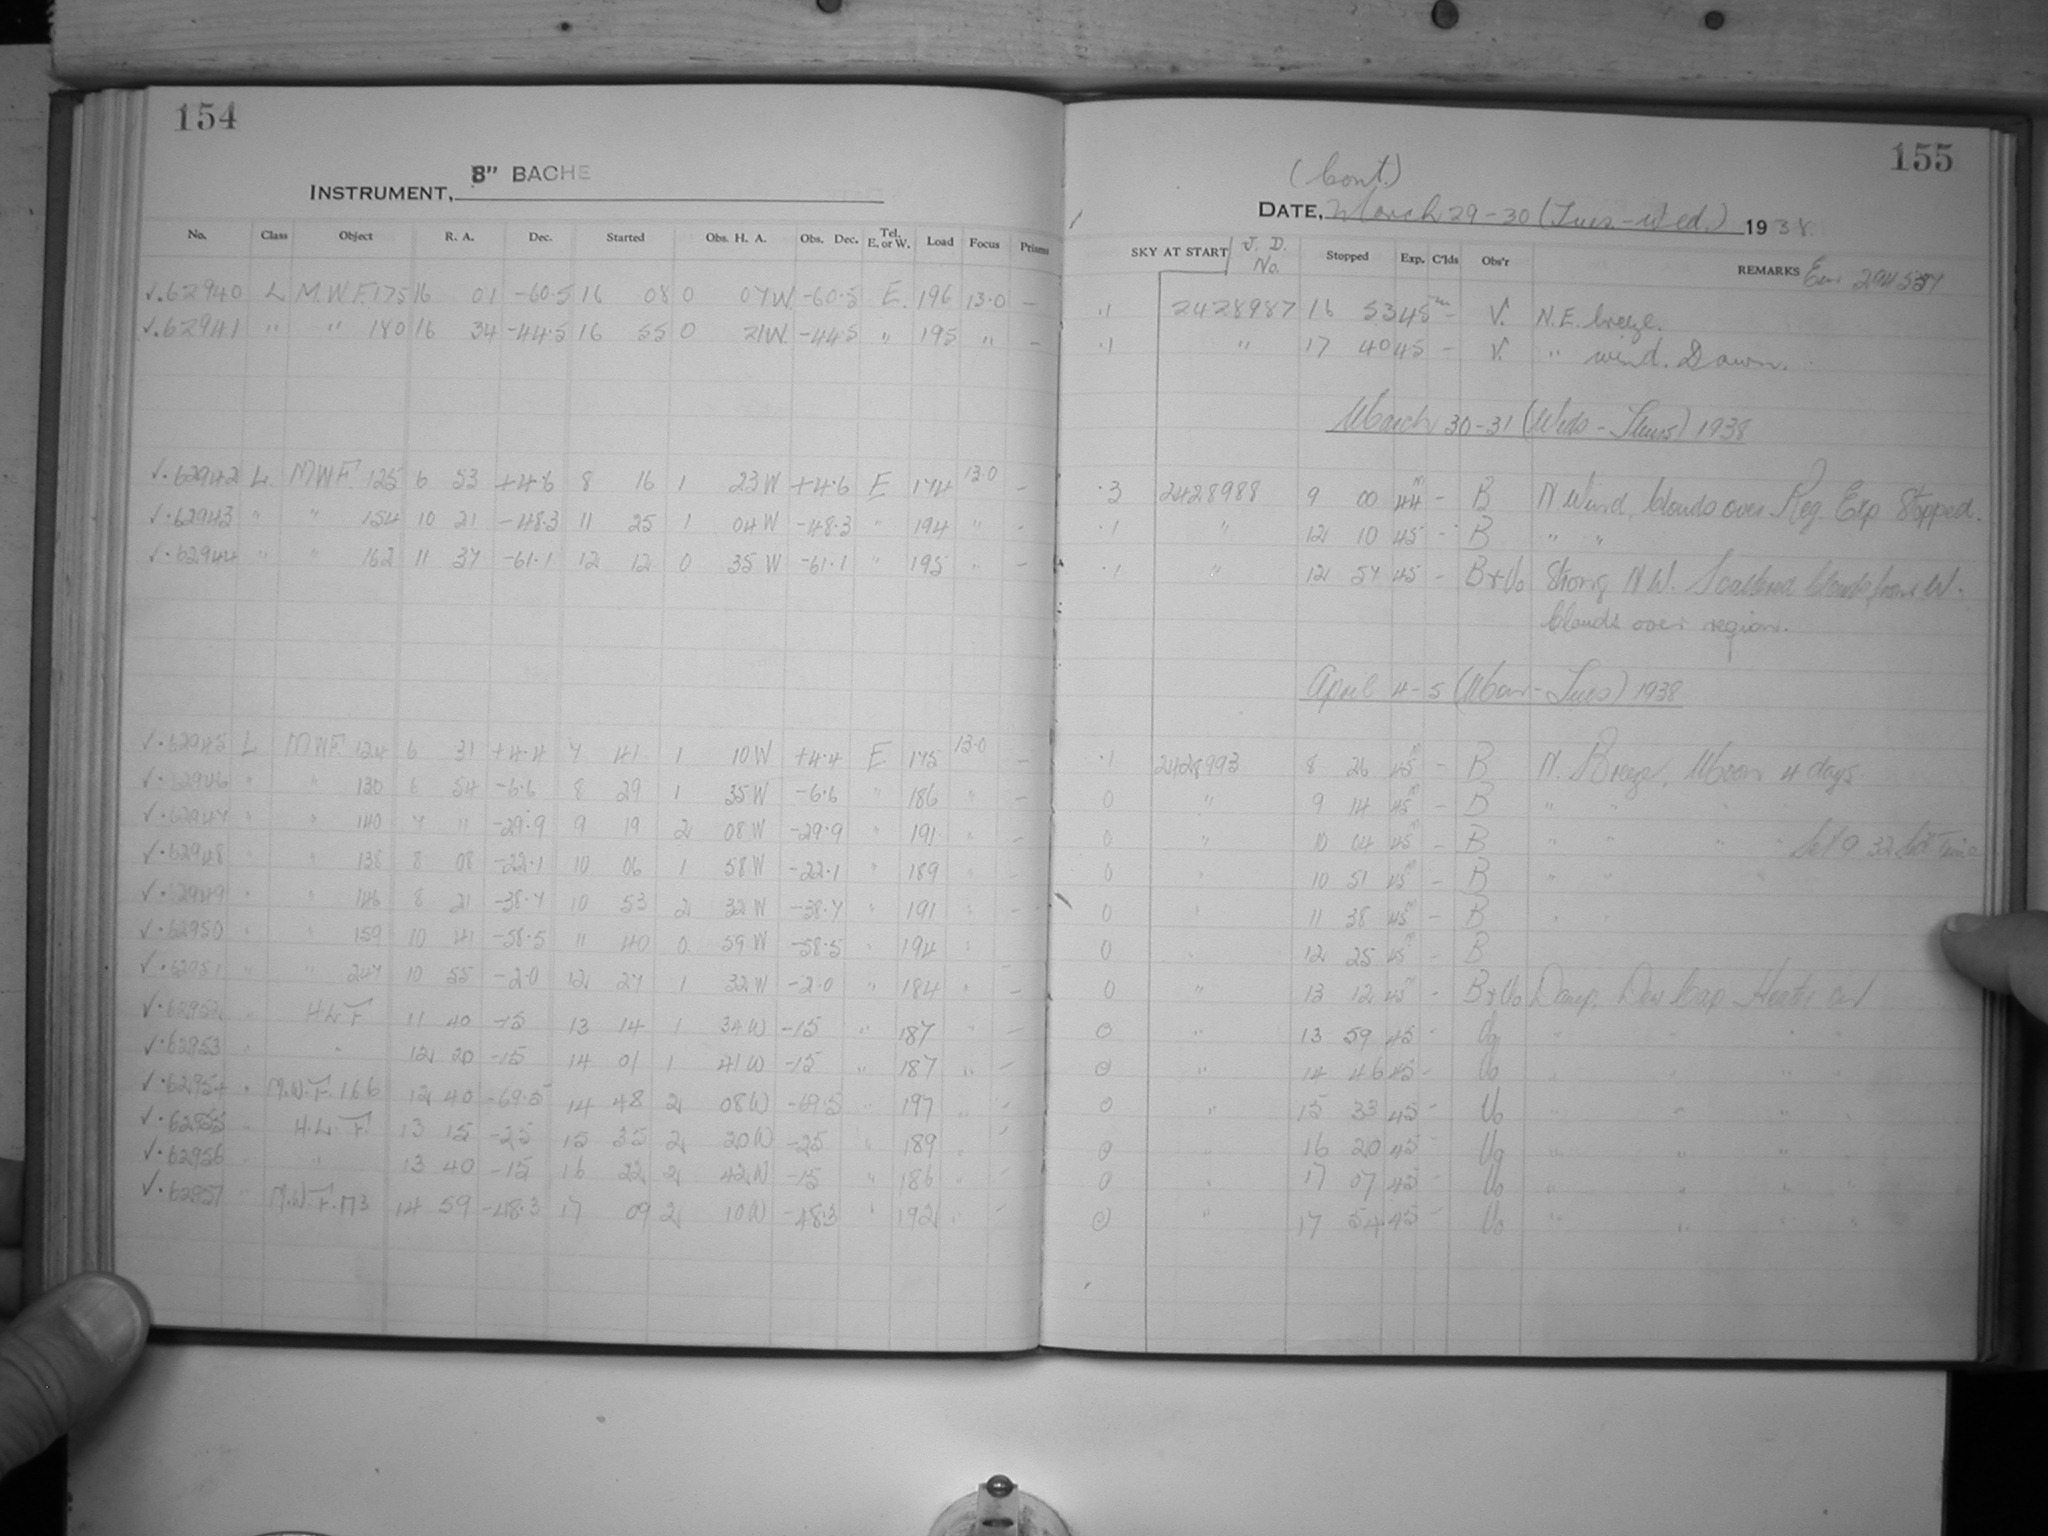 154
8" BACHE
INSTRUMENT,
No. Class Object R. A. Dec. Started Obs. H. A. Obs. Dec. Tel. E. or W. Load Focus Prisms
✓.62940 L M.W.F.175 16 01 -60.5 16 08 0 07W -60.5 E. 196 13.0 –
✓.62941 " " 180 16 34 -44.5 16 55 0 21W. -44.5 " 195 " –
✓.62942 L. MWF. 125 6 53 +4.6 8 16 1 23W +4.6 E 174 13.0 –
✓.62943 " " 154 10 21 -48.3 11 25 1 04W -48.3 " 194 " –
✓.62944 " " 162 11 37 -61.1 12 12 0 35W -61.1 " 195 " –
✓.62945 L MWF. 124 6 31 +4.4 7 41 1 10W +4.4 E 175 13.0 –
✓.62946 " " 130 6 54 -6.6 8 29 1 35W -6.6 " 186 " –
✓.62947 " " 140 7 11 -29.9 9 19 2 08W -29.9 " 191 " –
✓.62948 " " 138 8 08 -22.1 10 06 1 58W -22.1 " 189 " –
✓.62949 " " 146 8 21 -38.7 10 53 2 32W -38.7 " 191 " –
✓.62950 " " 159 10 41 -58.5 11 40 0 59W -58.5 " 194 "
✓.62951 " " 247 10 55 -2.0 12 27 1 32W -2.0 " 184 " –
✓.62952 " H.L.F 11 40 -15 13 14 1 34W -15 " 187 " –
✓.62953 " " 12 20 -15 14 01 1 41W -15 " 187 " –
✓.62954 " M.W.F.166 12 40 -69.5 14 48 2 08W -69.5 " 197 " –
✓.62955 " H.L.F. 13 15 -25 15 35 2 20W -25 " 189 " –
✓.62956 " " 13 40 -15 16 22 2 42W -15 " 186 " –
✓.62957 " M.W.F.173 14 59 -48.3 17 09 2 10W -48.3 " 192 " –
155
(Cont.)
DATE, March 29-30 (Tues.-Wed.) 1938.
SKY AT START J. D. No. Stopped Exp. C'lds Obs'r REMARKS
.1 2428987 16 53 45m – V. N.E. breeze.
.1 " 17 40 45 – V. " wind. Dawn.
March 30-31 (Weds-Thurs) 1938
.3 2428988 9 00 44m – B N Wind, Clouds over Reg. Exp Stopped.
.1 " 12 10 45 – B " "
.1 " 12 57 45 – B+Vo Strong N W. Scattered clouds from W.
Clouds over region.
April 4-5 (Mon-Tues) 1938
.1 2428993 8 26 45m – B N. Breeze, Moon 4 days
0 " 9 14 45m – B " "
0 " 10 04 45m – B " " " " Set 9 32 Sid Time
0 " 10 51 45m – B " "
0 " 11 38 45m – B " "
0 " 12 25 45m – B
0 " 13 12 45m – B+Vo Damp. Dew Cap Heater on
0 " 13 59 45 – Vo " " " "
0 " 14 46 45 – Vo " " " "
0 " 15 33 45 – Vo " " "
0 " 16 20 45 – Vo " " " "
0 " 17 07 45 – Vo " " " "
0 " 17 54 45 – Vo " " " "